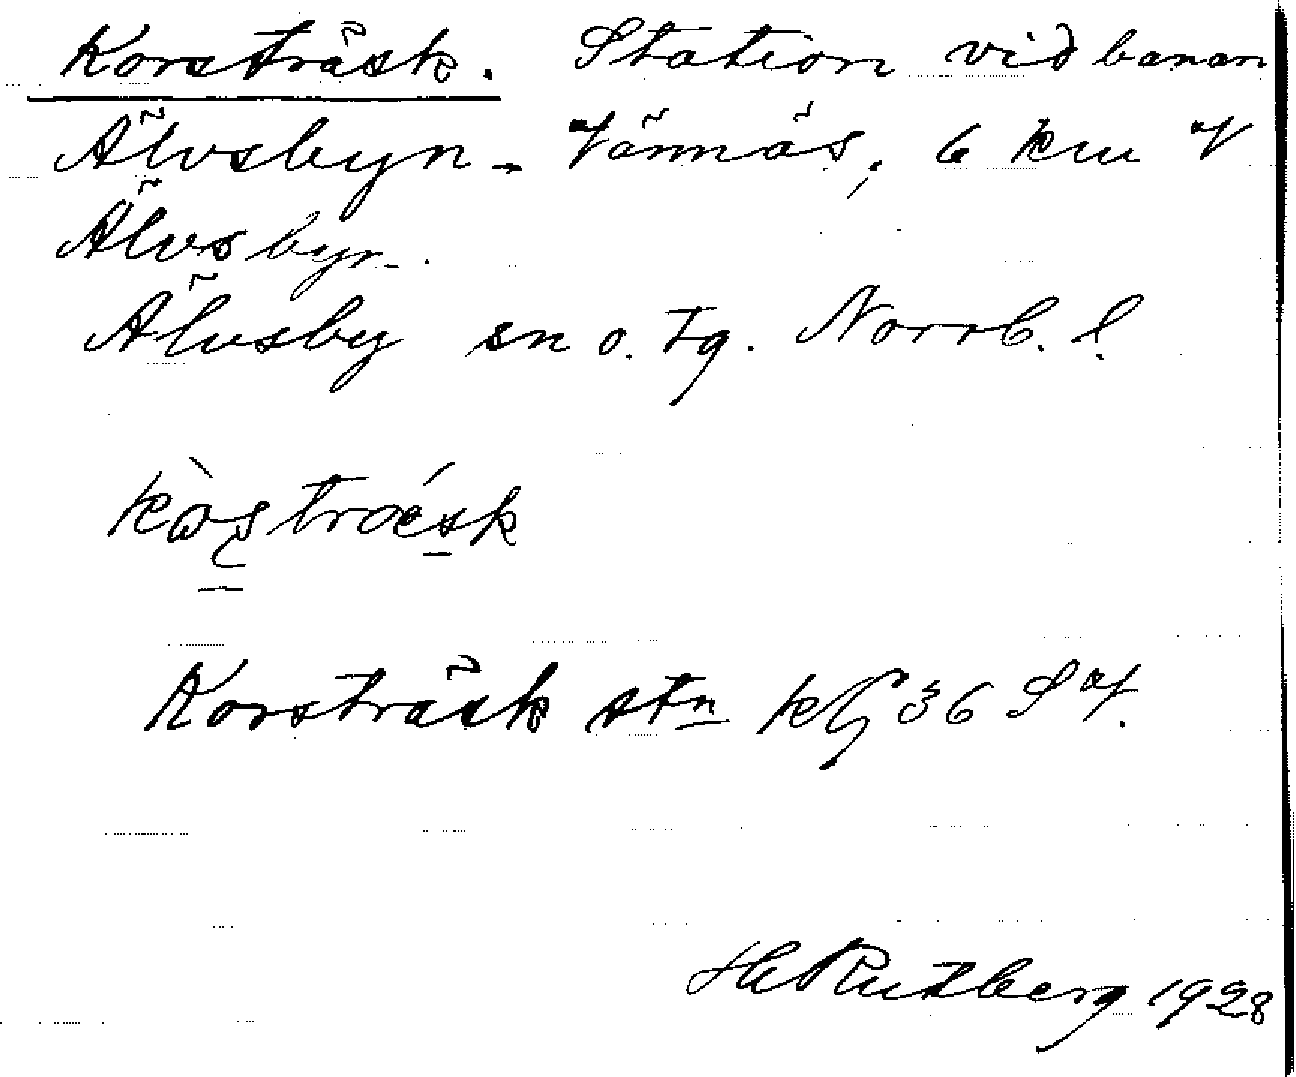 Korsträsk. Station vid banan
Älvsbyn - Jörnäs, 6 km V
Älvsbyn.
Älvsby sn o. tg. Norrb. l.
Korsträsk stn kbl 36 S V.
H Rutberg 1928